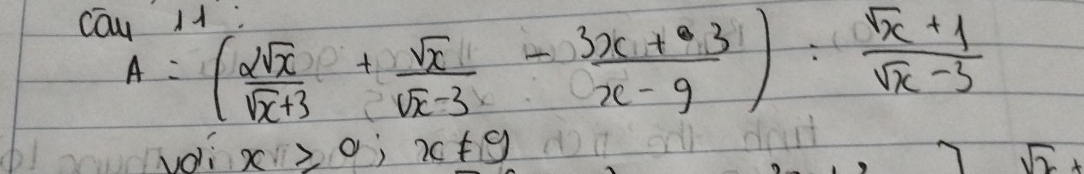 Câu 11:
A = (2√x/(√x+3) + √x/(√x-3) - (3x+3)/(x-9)) : (√x+1)/(√x-3)
với x ≥ 0; x ≠ 9